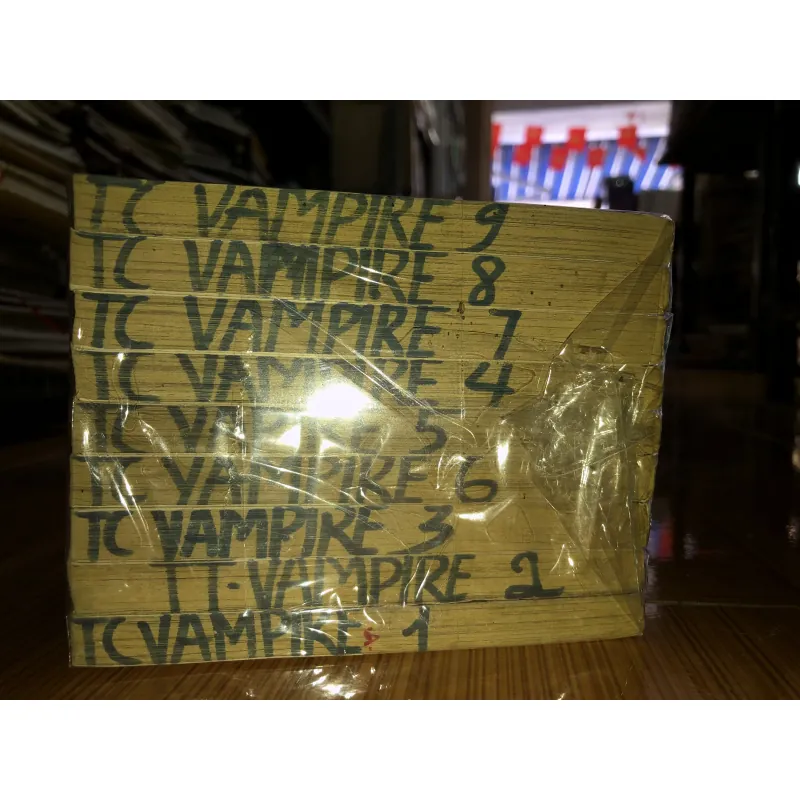 TC VAMPIRE 9
TC VAMPIRE 8
TC VAMPIRE 7
TC VAMPIRE 4
TC VAMPIRE 5
TC VAMPIRE 6
TC VAMPIRE 3
TT·VAMPIRE 2
TC VAMPIRE 1